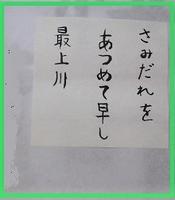 さみだれを
あつめて早し
最上川